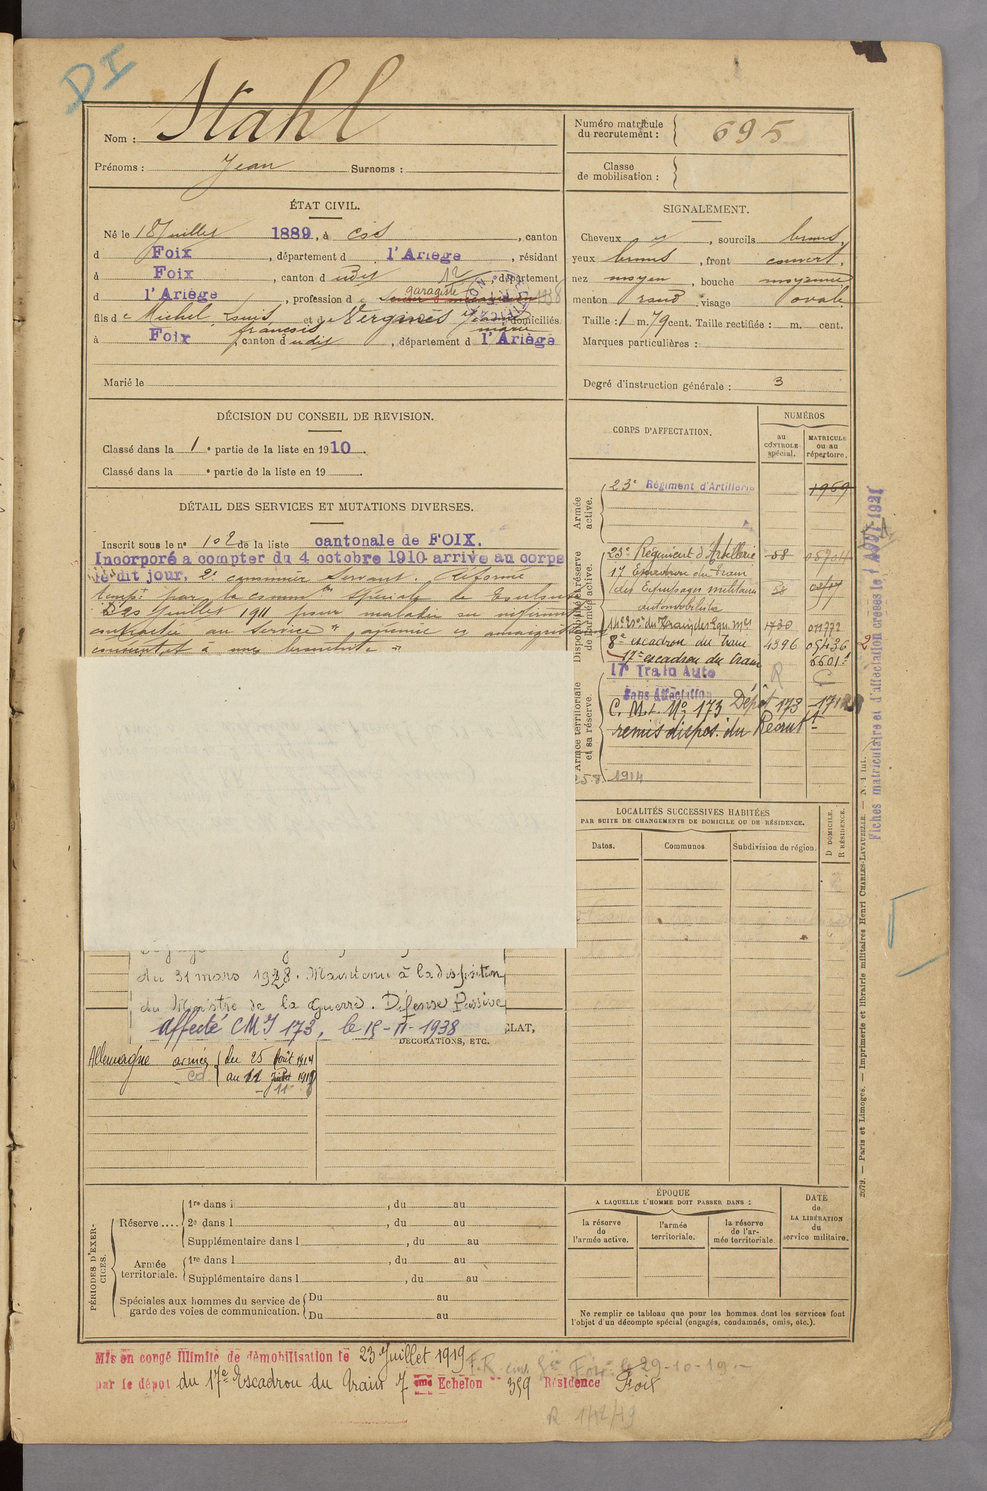 DI
Nom : Stahl
Prénoms : Jean Surnoms :
Numéro matricule du recrutement : 695
Classe de mobilisation :
ÉTAT CIVIL.
Né le 18 Juillet 1889, à Cos, canton
d Foix, département d l'Ariège, résidant
à Foix, canton d udit, département
d l'Ariège, profession d e garagiste
fils d e Michel, Louis françois et d e Vergancès Jeanne marie domiciliés
à Foix canton d udit, département d l'Ariège
Marié le
SIGNALEMENT.
Cheveux et, sourcils bruns,
yeux bruns, front couvert,
nez moyen, bouche moyenne
menton rond, visage ovale
Taille : 1 m. 79 cent. Taille rectifiée : m. cent.
Marques particulières :
Degré d'instruction générale : 3
DÉCISION DU CONSEIL DE REVISION.
Classé dans la 1e partie de la liste en 1910.
Classé dans la e partie de la liste en 19
DÉTAIL DES SERVICES ET MUTATIONS DIVERSES.
Inscrit sous le no 102 de la liste cantonale de FOIX.
Incorporé a compter du 4 octobre 1910 arrivé au corps
le dit jour, 2e canonnier servant. Réformé
tempre par la common spéciale de Toulouse
Juillet 1911 pour maladie ou infirmité
contractée au service "anémie et amaigrissement
consécutif à une
du 31 mars 1928. Maintenu à la disposition
du Ministre de la Guerre. Défense Passive
affecté CMI 173, le 15-11-1938
CLAT,
DÉCORATIONS, ETC.
Allemagne armée
du 25 Août 1914
au 11
CORPS D'AFFECTATION.
NUMÉROS
au CONTROLE spécial.
MATRICULE ou au répertoire.
Armée active.
23e Régiment d'Artillerie 1969
Disponibilité et réserve de l'armée active.
23e Régiment d'Artillerie 58
17 Escadron du Train
des Equipages militaires
automobiliste
14e Eson du Train des Equ. Mres 1730 011772
8e escadron du Train 4396 05436
17e escadron du train 6601
17e Train Auto R
Armée territoriale et sa réserve.
Sans Affectation
C. M. I. No 173 Dépôt 173
remis dispos. du Recrutt
25.8.1914
Fiches matriculaire et d'affectation créées le 1 AOUT 1921
LOCALITÉS SUCCESSIVES HABITÉES
PAR SUITE DE CHANGEMENTS DE DOMICILE OU DE RÉSIDENCE.
Dates. Communes Subdivision de région.
D DOMICILE. R RÉSIDENCE.
3079. — Paris et Limoges. — Imprimerie et librairie militaires Henri CHARLES-LAVAUZELLE. — N. 1 int.
PÉRIODES D'EXERCICES.
Réserve .... 1re dans l , du au
2e dans l , du au
Supplémentaire dans l , du au
Armée territoriale. 1re dans l , du au
Supplémentaire dans l , du au
Spéciales aux hommes du service de garde des voies de communication. Du au
Du au
ÉPOQUE
A LAQUELLE L'HOMME DOIT PASSER DANS :
la réserve de l'armée active.
l'armée territoriale.
la réserve de l'armée territoriale
DATE de LA LIBÉRATION du service militaire.
Ne remplir ce tableau que pour les hommes dont les services font l'objet d'un décompte spécial (engagés, condamnés, omis, etc.).
Mis en congé illimité de démobilisation le 23 Juillet 1919
par le dépôt du 17e Escadron du train 7 eme Echelon no 359 Résidence Foix
29-10-19